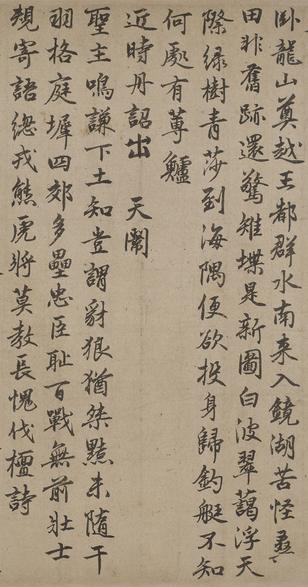 卧龍山奠越王都群水南来入鏡湖苦怪桑
田非舊跡還驚雉堞是新圖白波翠藹浮天
際緑樹青莎到海隅便欲投身歸釣艇不知
何處有蓴鱸
近時丹詔出 天闈
聖主鳴謙下土知豈謂豺狼猶桀黠未隨干
羽格庭墀四郊多壘忠臣耻百戰無前壯士
規寄語總戎熊虎將莫教長愧伐檀詩